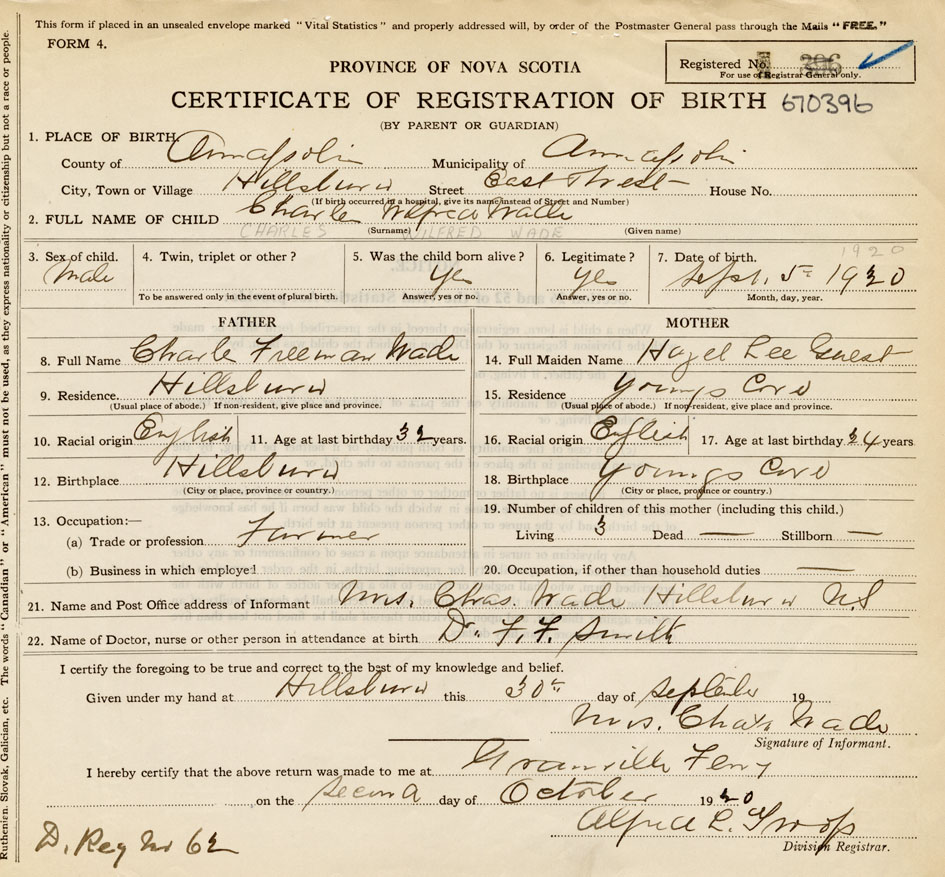 This form if placed in an unsealed envelope marked "Vital Statistics" and properly addressed will, by order of the Postmaster General pass through the Mails "FREE."
FORM 4.
Registered No. 396
For use of Registrar General only.
PROVINCE OF NOVA SCOTIA
CERTIFICATE OF REGISTRATION OF BIRTH 670396
(BY PARENT OR GUARDIAN)
1. PLACE OF BIRTH
County of Annapolis Municipality of Annapolis
City, Town or Village Hillsburn Street East Street House No.
(If birth occurred in a hospital, give its name instead of Street and Number)
2. FULL NAME OF CHILD Charles Wilfred Wade
CHARLES WILFRED WADE
(Surname) (Given name)
1920
3. Sex of child. Male 4. Twin, triplet or other? 5. Was the child born alive? Yes 6. Legitimate? Yes 7. Date of birth. Sept. 5th 1920
To be answered only in the event of plural birth. Answer, yes or no. Answer, yes or no. Month, day, year.
FATHER
8. Full Name Charle Freeman Wade
9. Residence. Hillsburn
(Usual place of abode.) If non-resident, give place and province.
10. Racial origin English 11. Age at last birthday 32 years.
12. Birthplace Hillsburn
(City or place, province or country.)
13. Occupation:—
(a) Trade or profession Farmer
(b) Business in which employed
MOTHER
14. Full Maiden Name Hazel Lee Guest
15. Residence Youngs Cove
(Usual place of abode.) If non-resident, give place and province.
16. Racial origin English 17. Age at last birthday 34 years
18. Birthplace Youngs Cove
(City or place, province or country.)
19. Number of children of this mother (including this child.)
Living 3 Dead — Stillborn —
20. Occupation, if other than household duties —
21. Name and Post Office address of Informant Mrs. Chas. Wade Hillsburn N.S
22. Name of Doctor, nurse or other person in attendance at birth Dr. F. F. Smith
I certify the foregoing to be true and correct to the best of my knowledge and belief.
Given under my hand at Hillsburn this 30th day of September 19
Mrs. Chas Wade
Signature of Informant.
I hereby certify that the above return was made to me at Granville Ferry
on the second day of October 1920
Alfred L. Troop
Division Registrar.
D. Reg No 62
Ruthenien. Slovak, Galician, etc. The words "Canadian" or "American" must not be used, as they express nationality or citizenship but not a race or people.